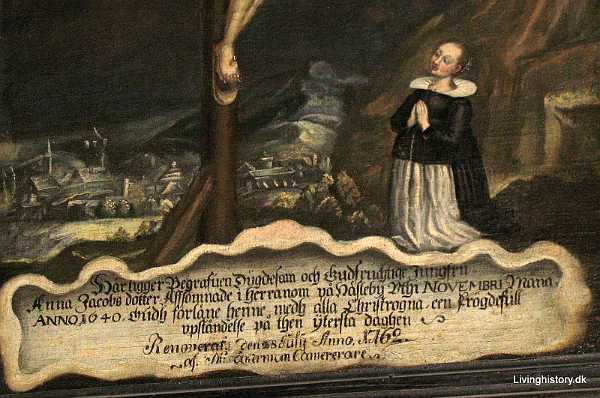 Här ligger Begrafuen Dygdesam och Gudfruchtige Jungfru
Anna Jacobs dotter. Afsomnade i herranom på Näsleby Mihi NOVEMBRI Mana
ANNO 1640. Gudh förläne henne, medh alla Christrogna een frögdefull
upståndelse på then yttersta daghen
Renoverat, den 28 Julij Anno, 
af
Livinghistory.dk